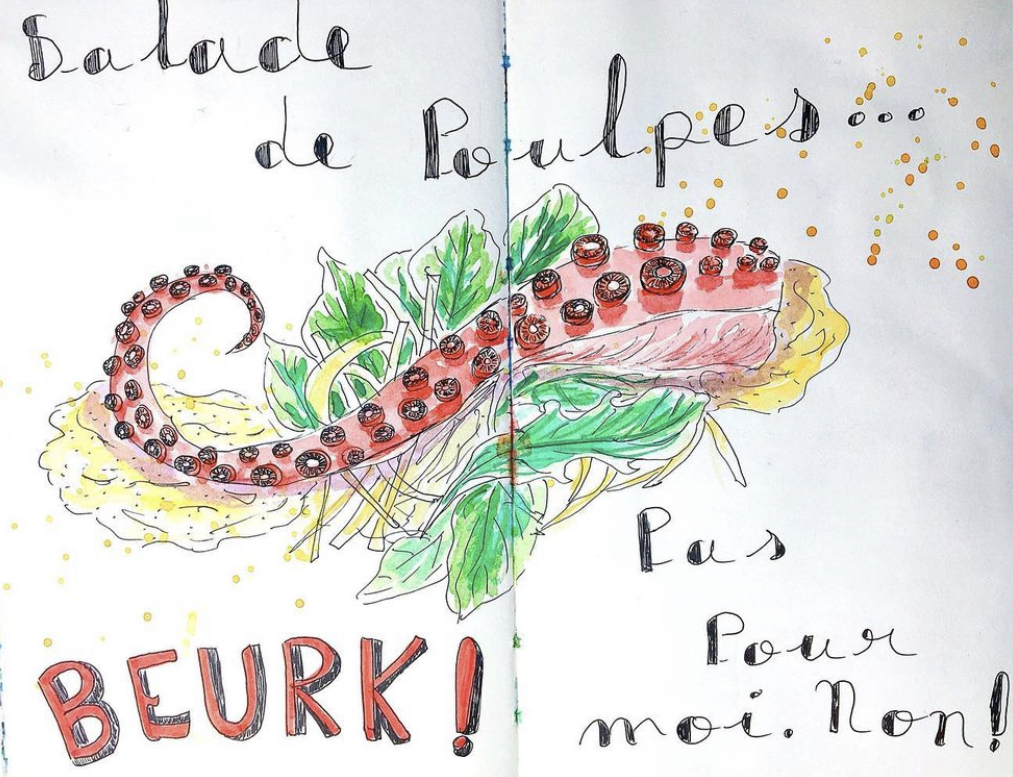 Salade
de Poulpes...
Pas
Pour
moi. Non!
BEURK!